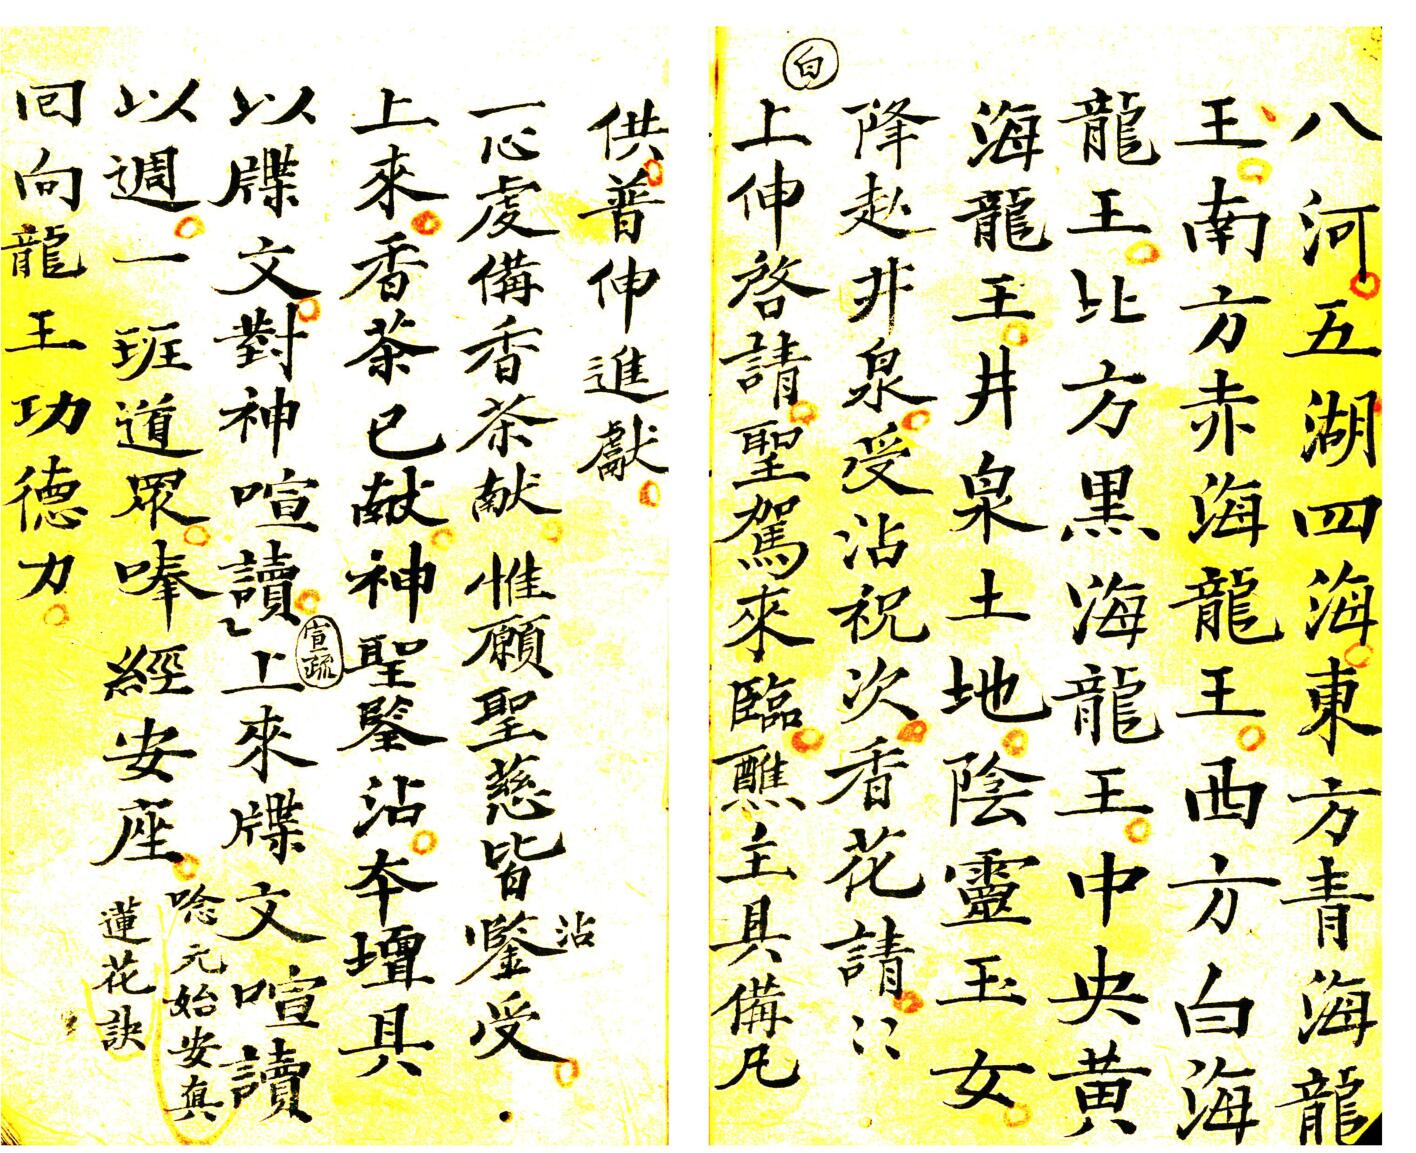 八河五湖四海東方青海龍
王南方赤海龍王西方白海
龍王北方黑海龍王中央黃
海龍王井泉土地陰靈玉女
降赴井泉受沾祝次香花請〻
白
上伸啓請聖駕來臨醮主具備凡
供普伸進獻
一心虔備香茶献惟願聖慈皆鑒受
沾
上來香茶已献神聖鑒沾夲壇具
宣疏
以牒文對神喧讀上來牒文喧讀
以週一班道眾唪經安座
唸元始安真
蓮花訣
回向龍王功德力